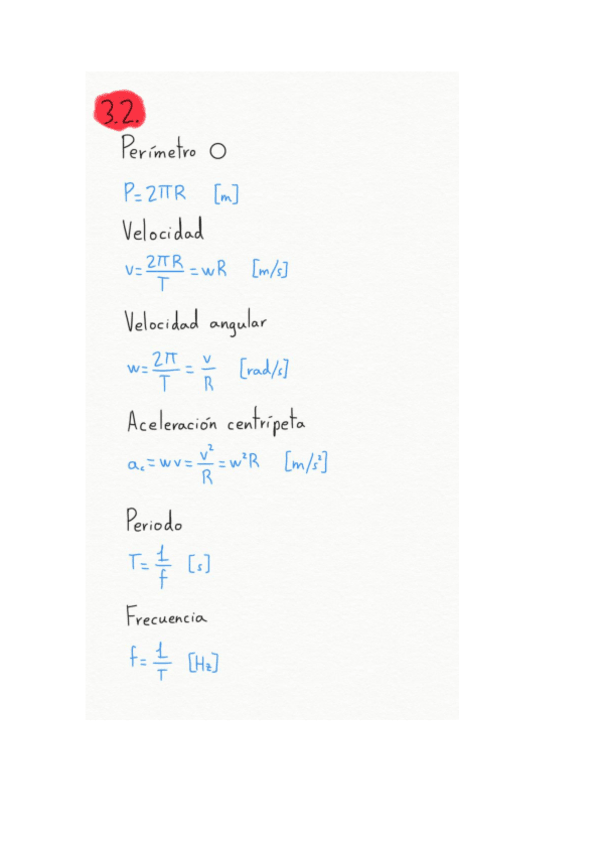 3.2.
Perímetro ○
P=2πR [m]
Velocidad
v=2πR/T=wR [m/s]
Velocidad angular
w=2π/T=v/R [rad/s]
Aceleración centrípeta
a꜀=wv=v²/R=w²R [m/s²]
Periodo
T=1/f [s]
Frecuencia
f=1/T [Hz]